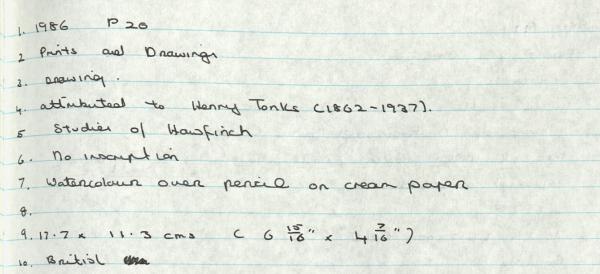 1. 1986 P 20
2 Prints and Drawings
3. Drawing.
4. attributed to Henry Tonks (1862-1937).
5 Studies of Hawfinch
6. No inscription
7. Watercolour over pencil on cream paper
8.
9. 17.7 x 11.3 cms ( 6 15/16" x 4 7/16")
10. British